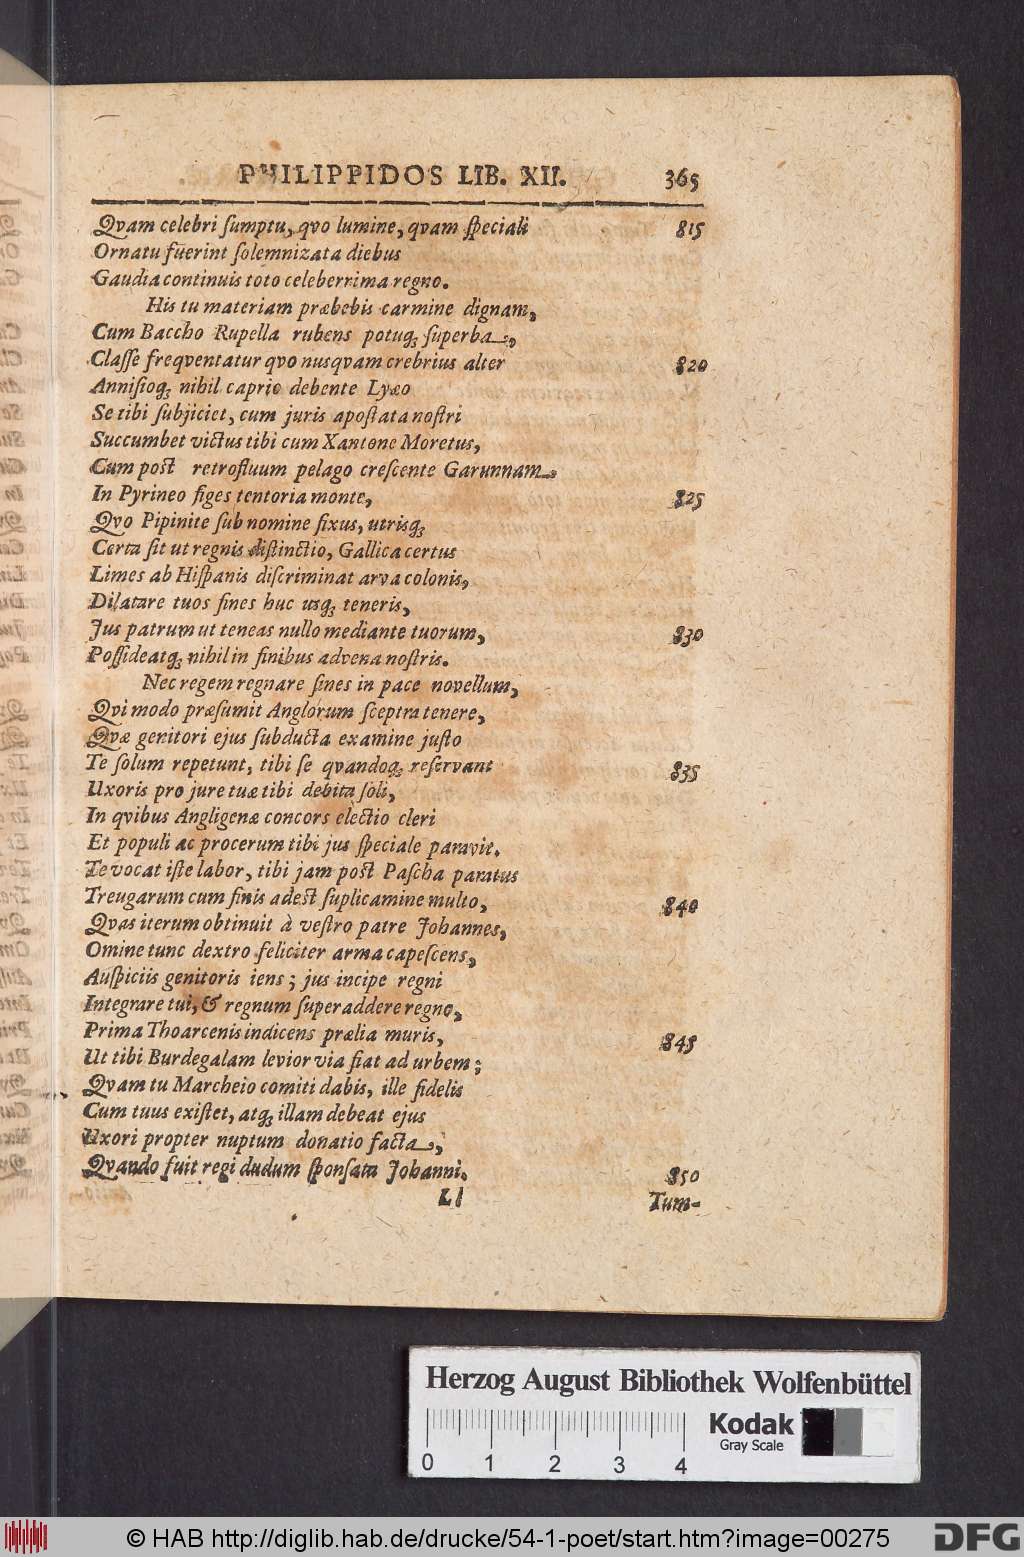 PHILIPPIDOS LIB. XII. 365
Qvam celebri ſumptu, qvo lumine, qvam ſpeciali 815
Ornatu fuerint ſolemnizata diebus
Gaudia continuis toto celeberrima regno.
His tu materiam præbebis carmine dignam,
Cum Baccho Rupella rubens potuq; ſuperba,
Claſſe freqventatur qvo nusqvam crebrius alter 820
Anniſioq; nihil caprio debente Lyæo
Se tibi ſubjiciet, cum juris apoſtata noſtri
Succumbet victus tibi cum Xantone Moretus,
Cum poſt retrofluum pelago creſcente Garunnam
In Pyrineo figes tentoria monte, 825
Qvo Pipinite ſub nomine fixus, utrisq;
Certa ſit ut regnis diſtinctio, Gallica certus
Limes ab Hiſpanis diſcriminat arva colonis,
Dilatare tuos fines huc usq; teneris,
Jus patrum ut teneas nullo mediante tuorum, 830
Poſſideatq; nihil in finibus advena noſtris.
Nec regem regnare ſines in pace novellum,
Qvi modo præſumit Anglorum ſceptra tenere,
Qvæ genitori ejus ſubducta examine juſto
Te ſolum repetunt, tibi ſe qvandoq; reſervant 835
Uxoris pro jure tuæ tibi debita ſoli,
In qvibus Angligenæ concors electio cleri
Et populi ac procerum tibi jus ſpeciale paravit.
Te vocat iſte labor, tibi jam poſt Paſcha paratus
Treugarum cum finis adeſt ſuplicamine multo, 840
Qvas iterum obtinuit à veſtro patre Johannes,
Omine tunc dextro feliciter arma capeſcens,
Auſpiciis genitoris iens; jus incipe regni
Integrare tui, & regnum ſuperaddere regno,
Prima Thoarcenis indicens prælia muris, 845
Ut tibi Burdegalam levior via fiat ad urbem;
Qvam tu Marcheio comiti dabis, ille fidelis
Cum tuus exiſtet, atq; illam debeat ejus
Uxori propter nuptum donatio facta,
Qvando fuit regi dudum ſponſata Johanni. 850
Ll Tum-
Herzog August Bibliothek Wolfenbüttel
Kodak
Gray Scale
0 1 2 3 4
© HAB http://diglib.hab.de/drucke/54-1-poet/start.htm?image=00275
DFG